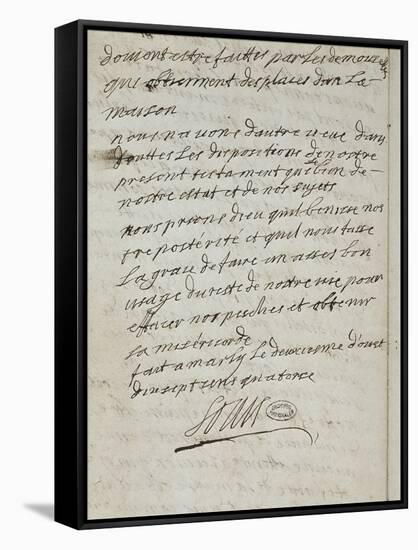 doivent estre faittes par les demoiselles
qui obtiennent des places dans la
maison
nous navons dautre veue dans
touttes les dispositions de nostre
present testament que le bien de
nostre estat et de nos sujets
nous prions dieu quil benisse nos
tre postérité et quil nous fasse
la grace de faire un asses bon
usage du reste de nostre vie pour
effacer nos peches et obtenir
sa miséricorde
fait a marly le deuxiesme daoust
dix sept cens quatorse
Louis